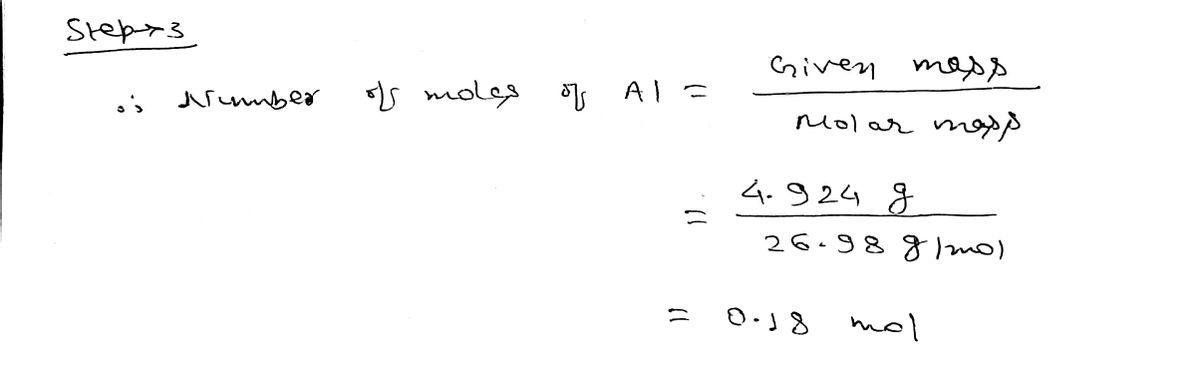 Step→3
∴ Number of moles of Al = Given mass / Molar mass
= 4.924 g / 26.98 g/mol
= 0.18 mol